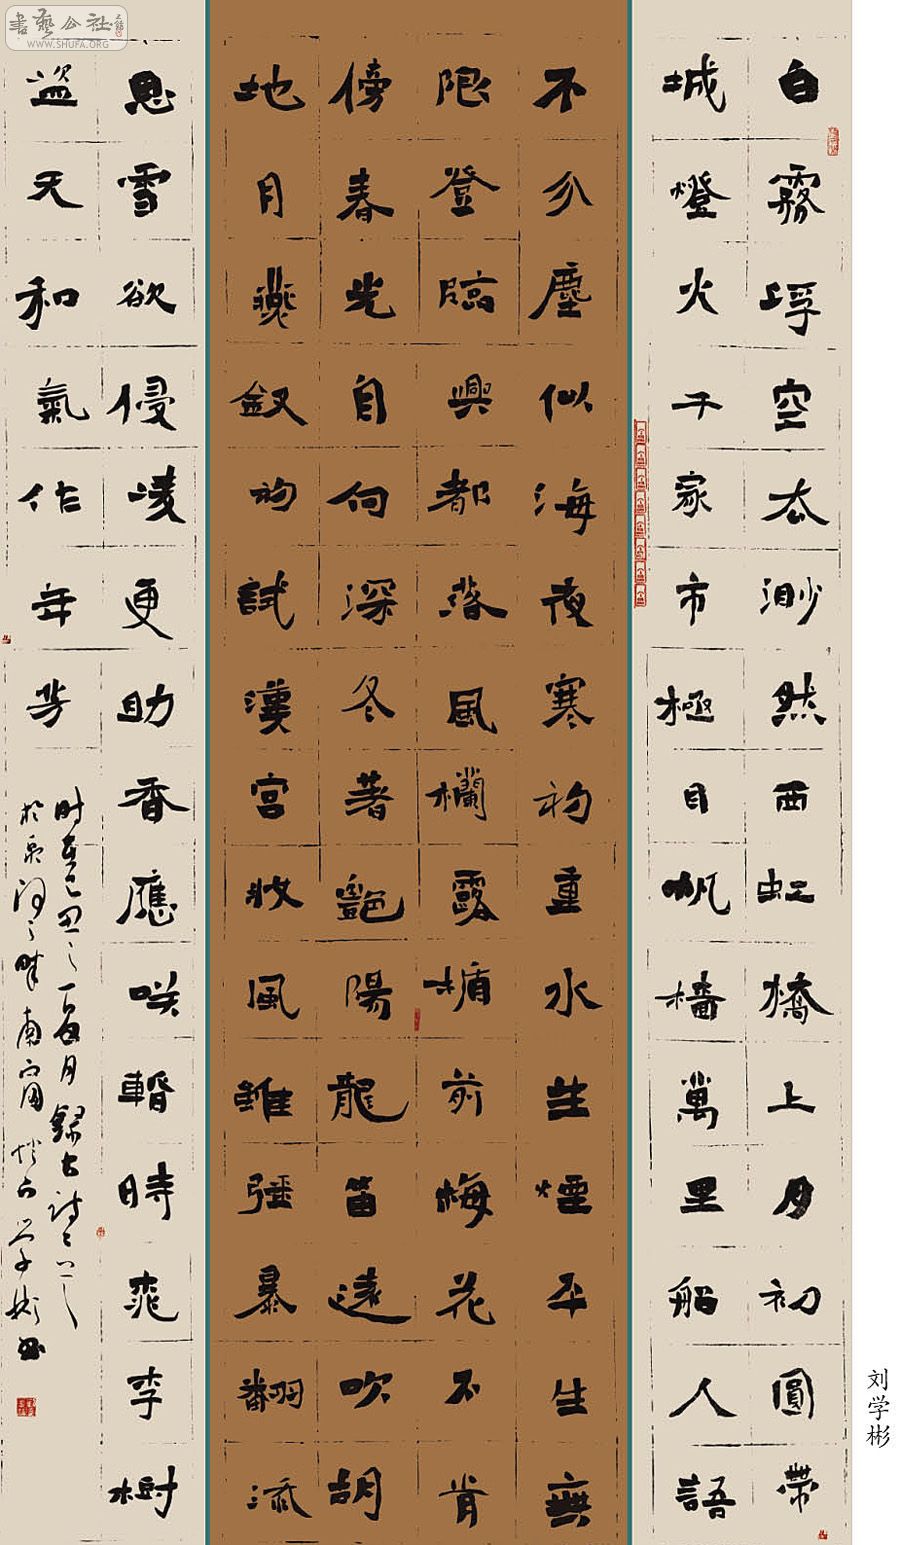 書藝公社
WWW.SHUFA.ORG
白霧浮空太渺然西虹橋上月初圓帶
城燈火千家市極目帆檣萬里船人語
不分塵似海夜寒初重水生煙平生無
限登臨興都落風欄露楯前梅花不肯
傍春光自向深冬著艷陽龍笛遠吹胡
地月燕釵初試漢宮妝風雖强暴翻添
思雪欲侵凌更助香應咲暫時桃李樹
盜天和氣作年芳
时在己丑之月録古詩二
於泉河之畔南窗学彬书
刘学彬